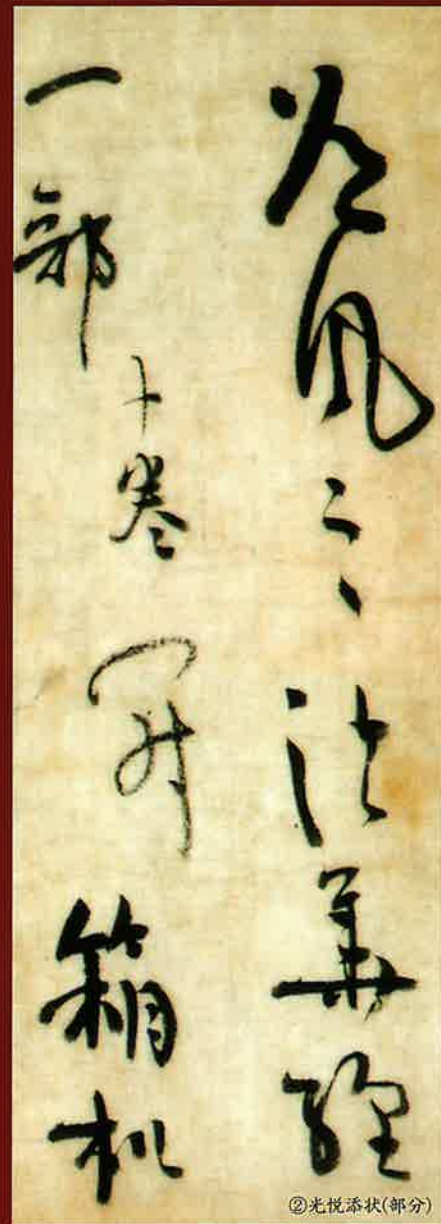 道風之法華經
一部十巻 箱机
②光悦添状(部分)